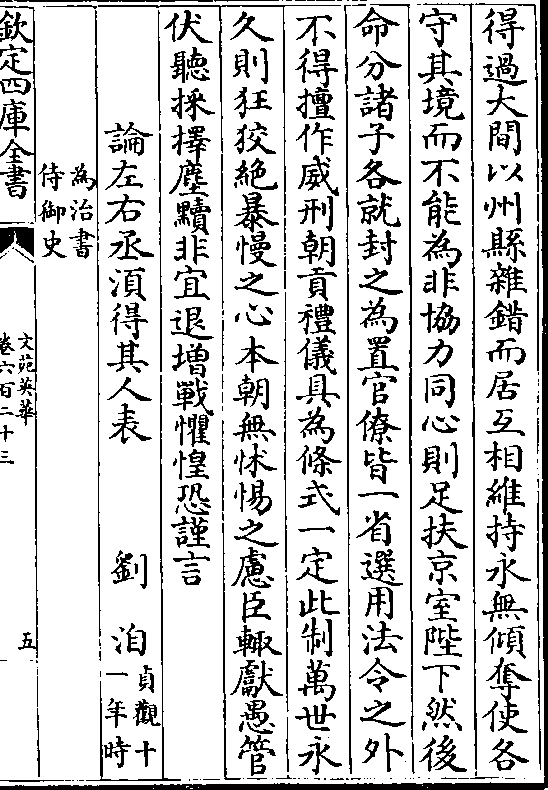 得過大間以州縣雜錯而居互相維持永無傾奪使各
守其境而不能為非協力同心則足扶京室陛下然後
命分諸子各就封之為置官僚皆一省選用法令之外
不得擅作威刑朝貢禮儀具為條式一定此制萬世永
久則狂狡絶暴慢之心本朝無怵惕之慮臣輙獻愚管
伏聽採擇塵黷非宜退增戰懼惶恐謹言
論左右丞湏得其人表 劉洎 貞觀十
一年時
為治書
侍御史
欽定四庫全書
文苑英華
卷六百二十三
五